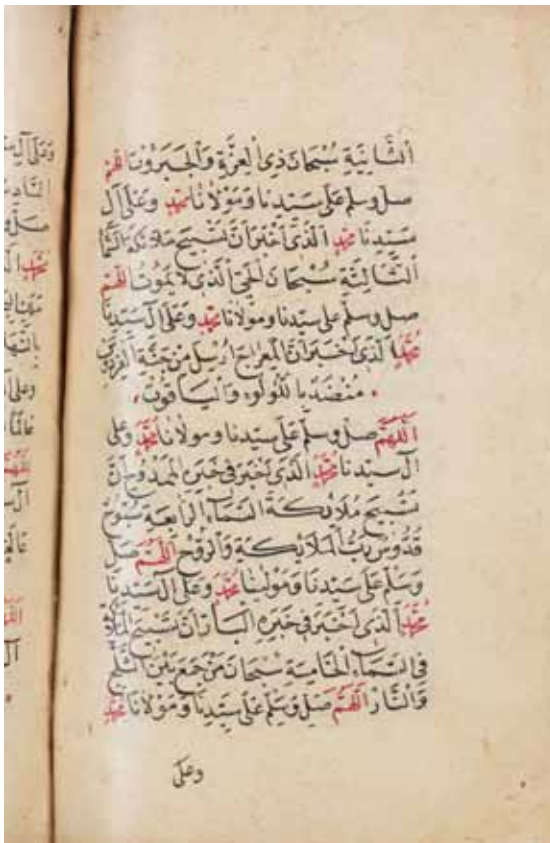 الثَّانِيَةِ سُبْحَانَ ذِى الْعِزَّةِ وَالْجَبَرُوْتِ اللهم
صل وسلم عَلَى سَيِّدِنا وَمَوْلَانَا محمد وَعَلَى آلِ
سيدنا محمد الَّذى اَخْبَرَ اَنَّ تَسْبِيحَ ملائكة السَّمآء
الثَّالِثَة سُبْحَانَ الْحَىِّ الَّذى لايَمُوتُ اللهم
صل وسلم على سيدنا ومولانا محمد وعَلَى آل سيدنا
محمد الَّذى اَخْبَرَ اَنَّ المِعْرَاجَ اُرْسِلَ مِنْ جَنَّة الفردوس
منضدبا للؤلوء والياقوت
اللَّهُمَّ صل وسلم عَلَى سيدنا ومولانا محمد وعلى
آل سيدنا محمد الَّذى اَخْبَرَ فى خَبَرِهِ الممدوح اَنَّ
تسبيح مُلَائكة السَّمآءِ الرَّابعةِ سُبُّوحٌ
قُدُّوسٌ رَبُّ الملَائكةِ وَالرُّوْحِ اللَّهُمَّ صل
وَسَلم عَلَى سيدنَا وَمَوْلينَا محمد وعلى آل سيدنا
محمد الَّذى اَخْبَرَ فى خَبَرِهِ البار اَنَّ تسبيح
فى السَّمآء الخَامِسَة سُبْحَانَ مَنْ جَمَعَ بَيْنَ الثَّلْجِ
وَالنَّار اللَّهُمَّ صَلِّ وَسَلِّمْ عَلَى سيدنا وَمَوْلَانَا محمد
وعلى